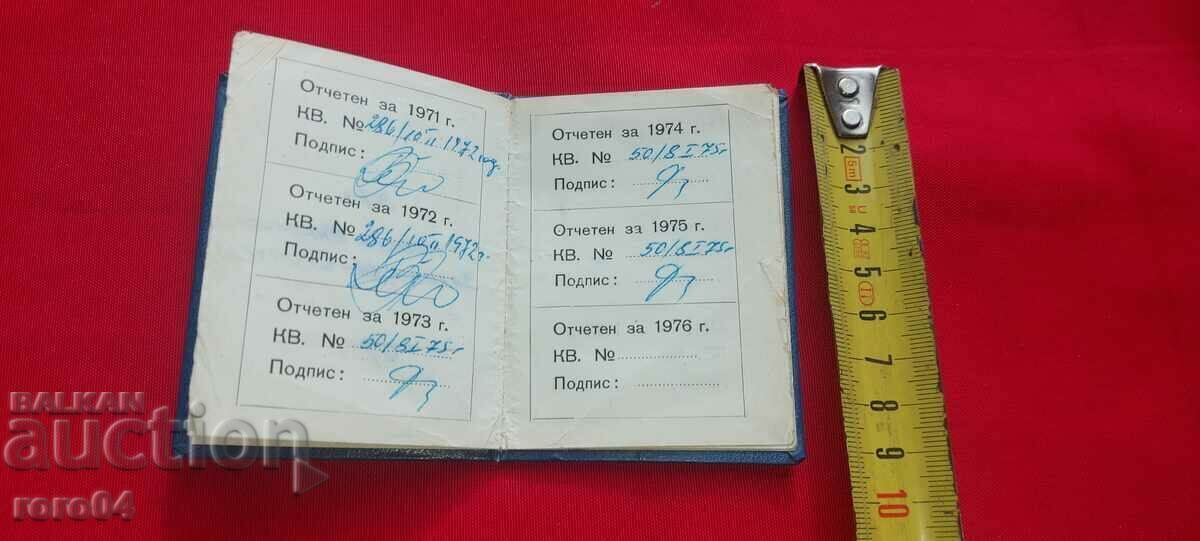 Отчетен за 1971 г.
КВ. № 286/10 II 1972 год
Подпис:
Отчетен за 1972 г.
КВ. № 286/10 II 1972 г.
Подпис:
Отчетен за 1973 г.
КВ. № 50/8 I 75 г
Подпис:
Отчетен за 1974 г.
КВ. № 50/8 I 75 г
Подпис:
Отчетен за 1975 г.
КВ. № 50/8 I 75 г
Подпис:
Отчетен за 1976 г.
КВ. №
Подпис:
2
5m
3
4
5
6
7
8
9
10
BALKAN
auction
roro04